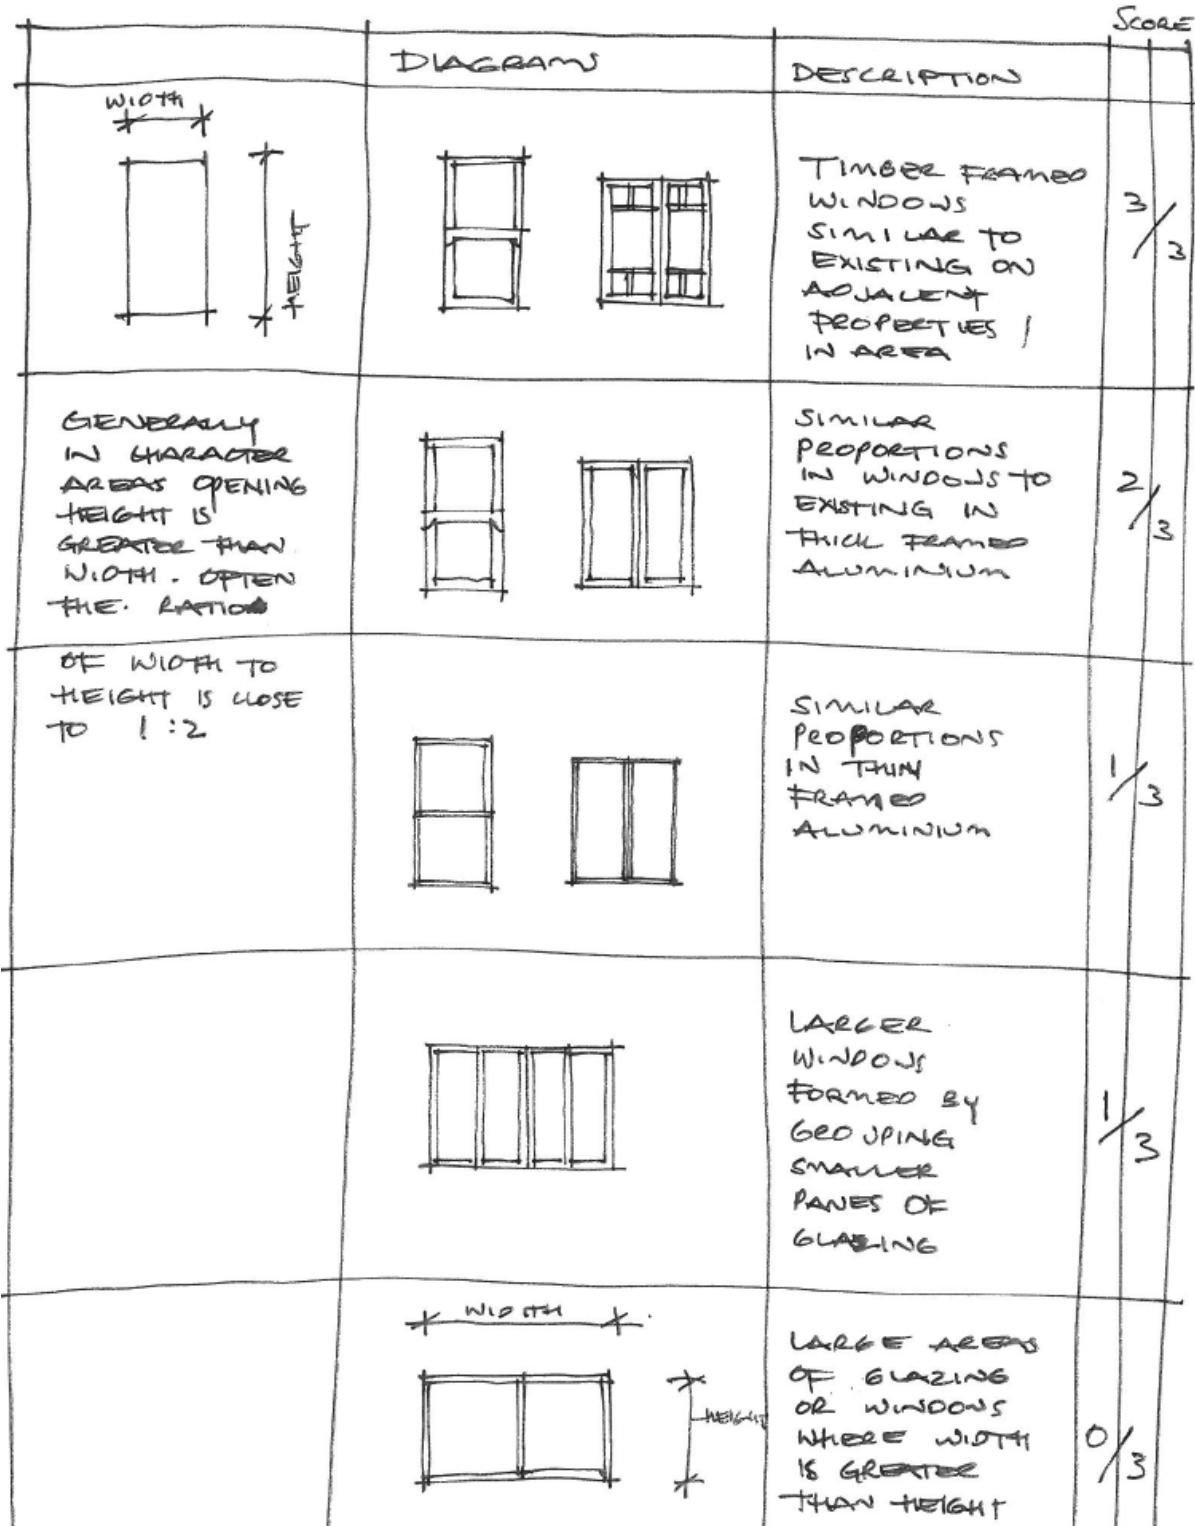 SCORE
DIAGRAMS
DESCRIPTION
WIDTH
HEIGHT
TIMBER FRAMED
WINDOWS
SIMILAR TO
EXISTING ON
ADJACENT
PROPERTIES /
IN AREA
3/3
GENERALLY
IN CHARACTER
AREAS OPENING
HEIGHT IS
GREATER THAN
WIDTH. OFTEN
THE. RATIO
SIMILAR
PROPORTIONS
IN WINDOWS TO
EXISTING IN
THICK FRAMED
ALUMINIUM
2/3
OF WIDTH TO
HEIGHT IS CLOSE
TO 1:2
SIMILAR
PROPORTIONS
IN THIN
FRAMED
ALUMINIUM
1/3
LARGER
WINDOWS
FORMED BY
GROUPING
SMALLER
PANES OF
GLAZING
1/3
WIDTH
HEIGHT
LARGE AREAS
OF GLAZING
OR WINDOWS
WHERE WIDTH
IS GREATER
THAN HEIGHT
0/3